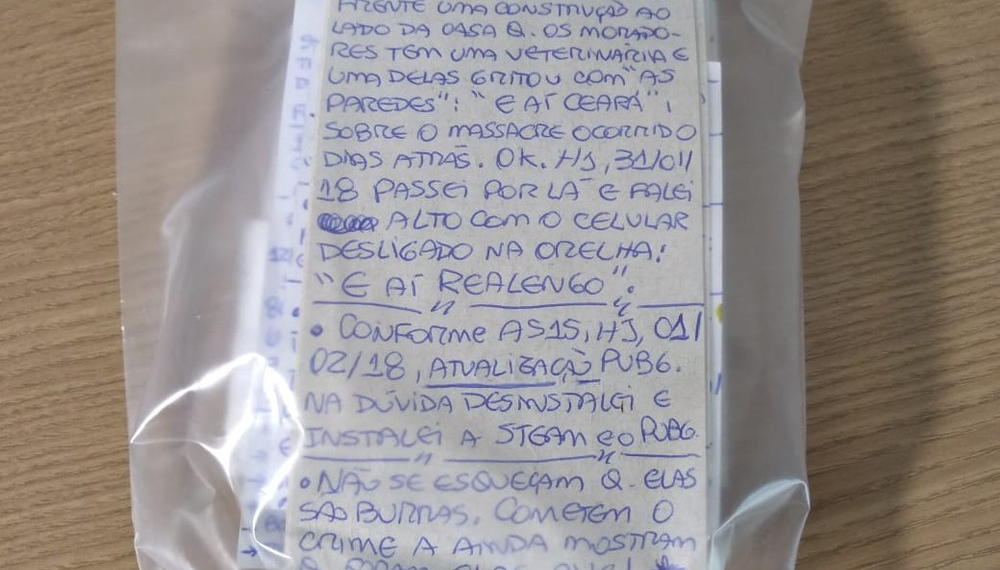 FRENTE UMA CONSTRUÇÃO AO
LADO DA CASA Q. OS MORADO-
RES TEM UMA VETERINÁRIA E
UMA DELAS GRITOU COM "AS
PAREDES": "E AÍ CEARÁ",
SOBRE O MASSACRE OCORRIDO
DIAS ATRÁS. OK. HJ, 31/01/
18 PASSEI POR LÁ E FALEI
ALTO COM O CELULAR
DESLIGADO NA ORELHA:
"E AÍ REALENGO".
• CONFORME AS15, HJ, 01/
02/18, ATUALIZAÇÃO PUBG.
NA DÚVIDA DESINSTALEI E
INSTALEI A STEAM E O PUBG.
• NÃO SE ESQUEÇAM Q. ELAS
SÃO BURRAS. COMETEM O
CRIME A AINDA MOSTRAM